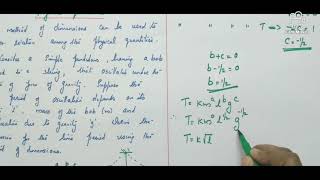 method of dimensions can be used to
relation among the physical quantities.
Consider a simple pendulum, having a bob
to a string, that oscillates under the
of gravity. Suppose the
period of oscillation depends on its
mass of the bob (m) and
due to gravity 'g'. Derive the
for its time period using the
of dimensions.
" " " " T ⇒ -2c = 1
c = -1/2
b + c = 0
b - 1/2 = 0
b = 1/2
T = k m^a l^b g^c
∴ T = k m^0 l^1/2 g^-1/2
T = k √l